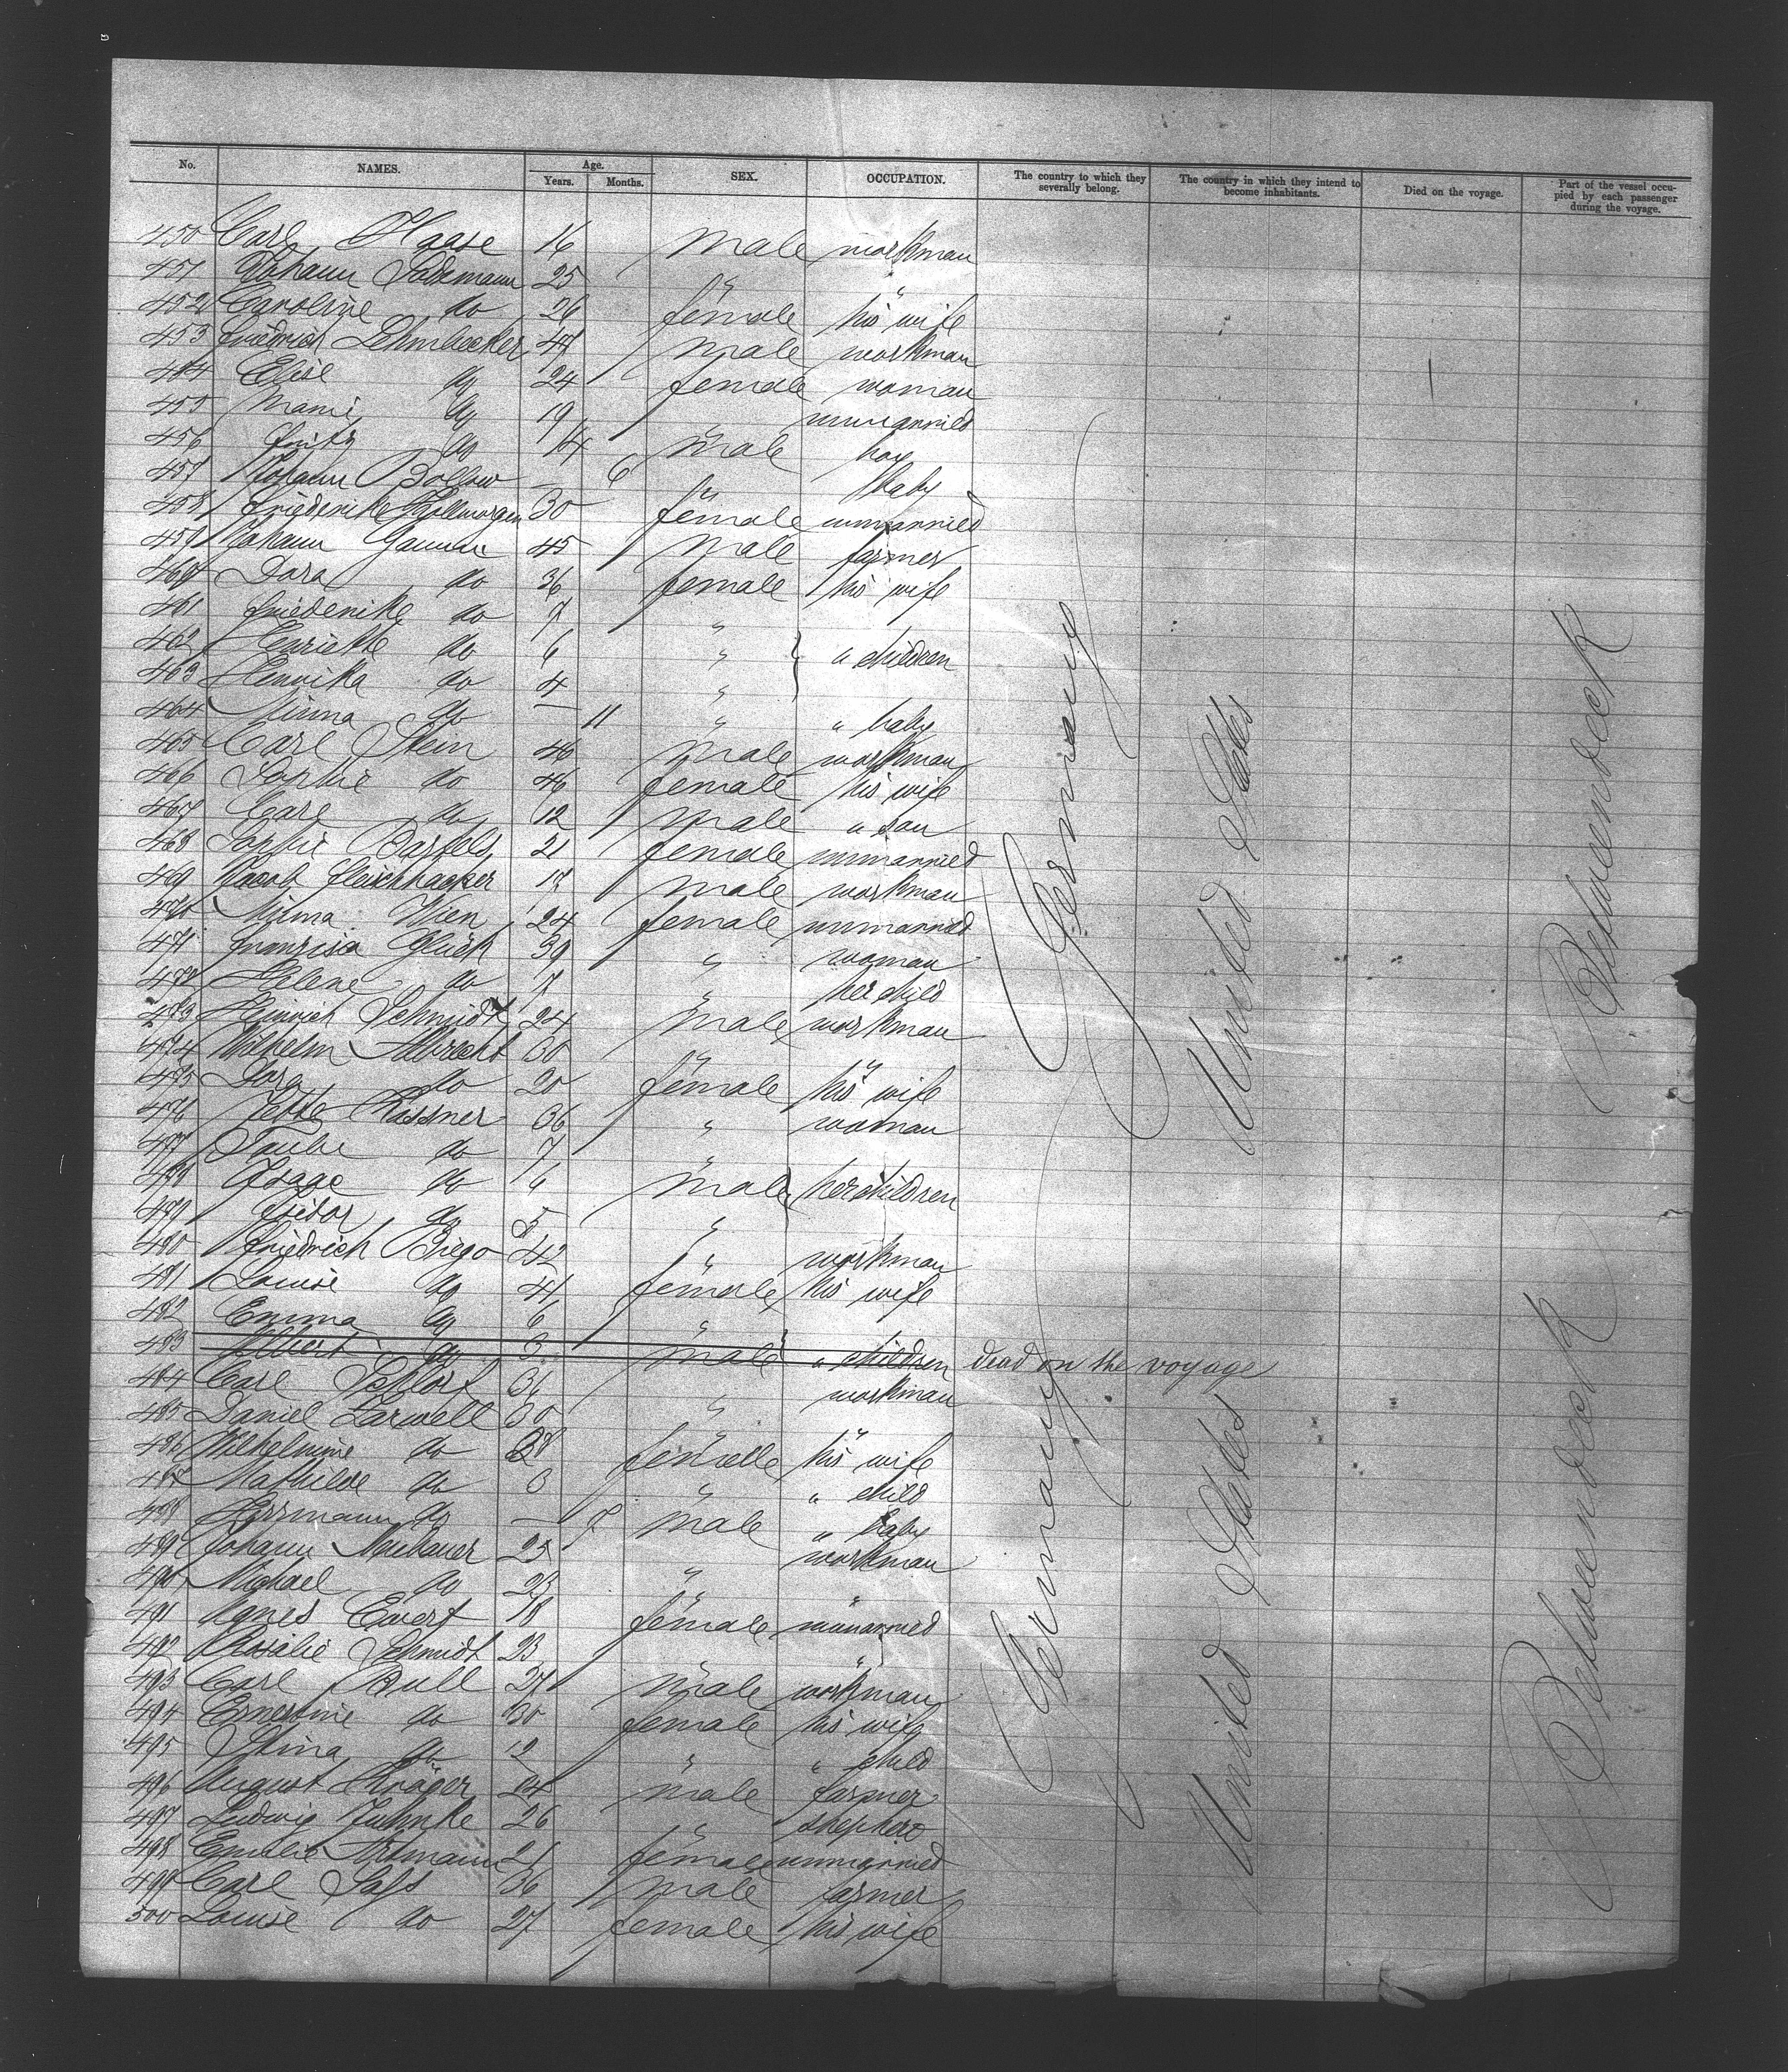 No. NAMES. Age. Years. Months. SEX. OCCUPATION. The country to which they severally belong. The country in which they intend to become inhabitants. Died on the voyage. Part of the vessel occupied by each passenger during the voyage.
450 Carl Haase 16 male workman
451 Johann 25 " "
452 Caroline do 26 female his wife
453 Friedrich Lehmbecker male workman
454 Elise do 24 female woman
455 do 19 " unmarried
456 Fritz do 14 male boy
457 Johann Bollow — 6 " baby
458 Friederike 30 female unmarried
459 Johann 45 male farmer
460 Dora do 36 female his wife
461 Friederike do 7 "
462 Henriette do 6 " " children
463 do 4 "
464 Minna do — 11 " " baby
465 Carl Stein 46 male workman
466 Sophie do 46 female his wife
467 Carl do 12 male " son
468 Sophie Bartels 21 female unmarried
469 Jacob Fleischhacker male workman
470 Minna Wien 24 female unmarried
471 Glück 39 " woman
472 Helene do 7 " her child
473 Heinrich Schmidt 24 male workman
474 Wilhelm Albrecht 30 " "
475 Dora do 20 female his wife
476 36 " woman
477 Taube do 7 "
478 do 6 male her children
479 Isidor do 5 "
480 Friedrich 42 " workman
481 Louise do 41 female his wife
482 Emma do 6 "
483 Albert do 3 male " children dead on the voyage
484 Carl 36 " workman
485 Daniel Zarwell 30 " "
486 Wilhelmine do female his wife
487 Mathilde do 3 " " child
488 Herrmann do — 7 male " baby
489 Johann Neubauer 25 " workman
490 Michael do 23 " "
491 Agnes Ewert 18 female unmarried
492 Rosalie Schmidt 23 " "
493 Carl Bull 27 male workman
494 Ernestine do 30 female his wife
495 do " " child
496 August Kröger 24 male farmer
497 Ludwig 26 " shepherd
498 Emilie 21 female unmarried
499 Carl Sass 36 male farmer
500 Louise do 27 female his wife
Germany
United States
Betweendeck
Germany
United States
Betweendeck